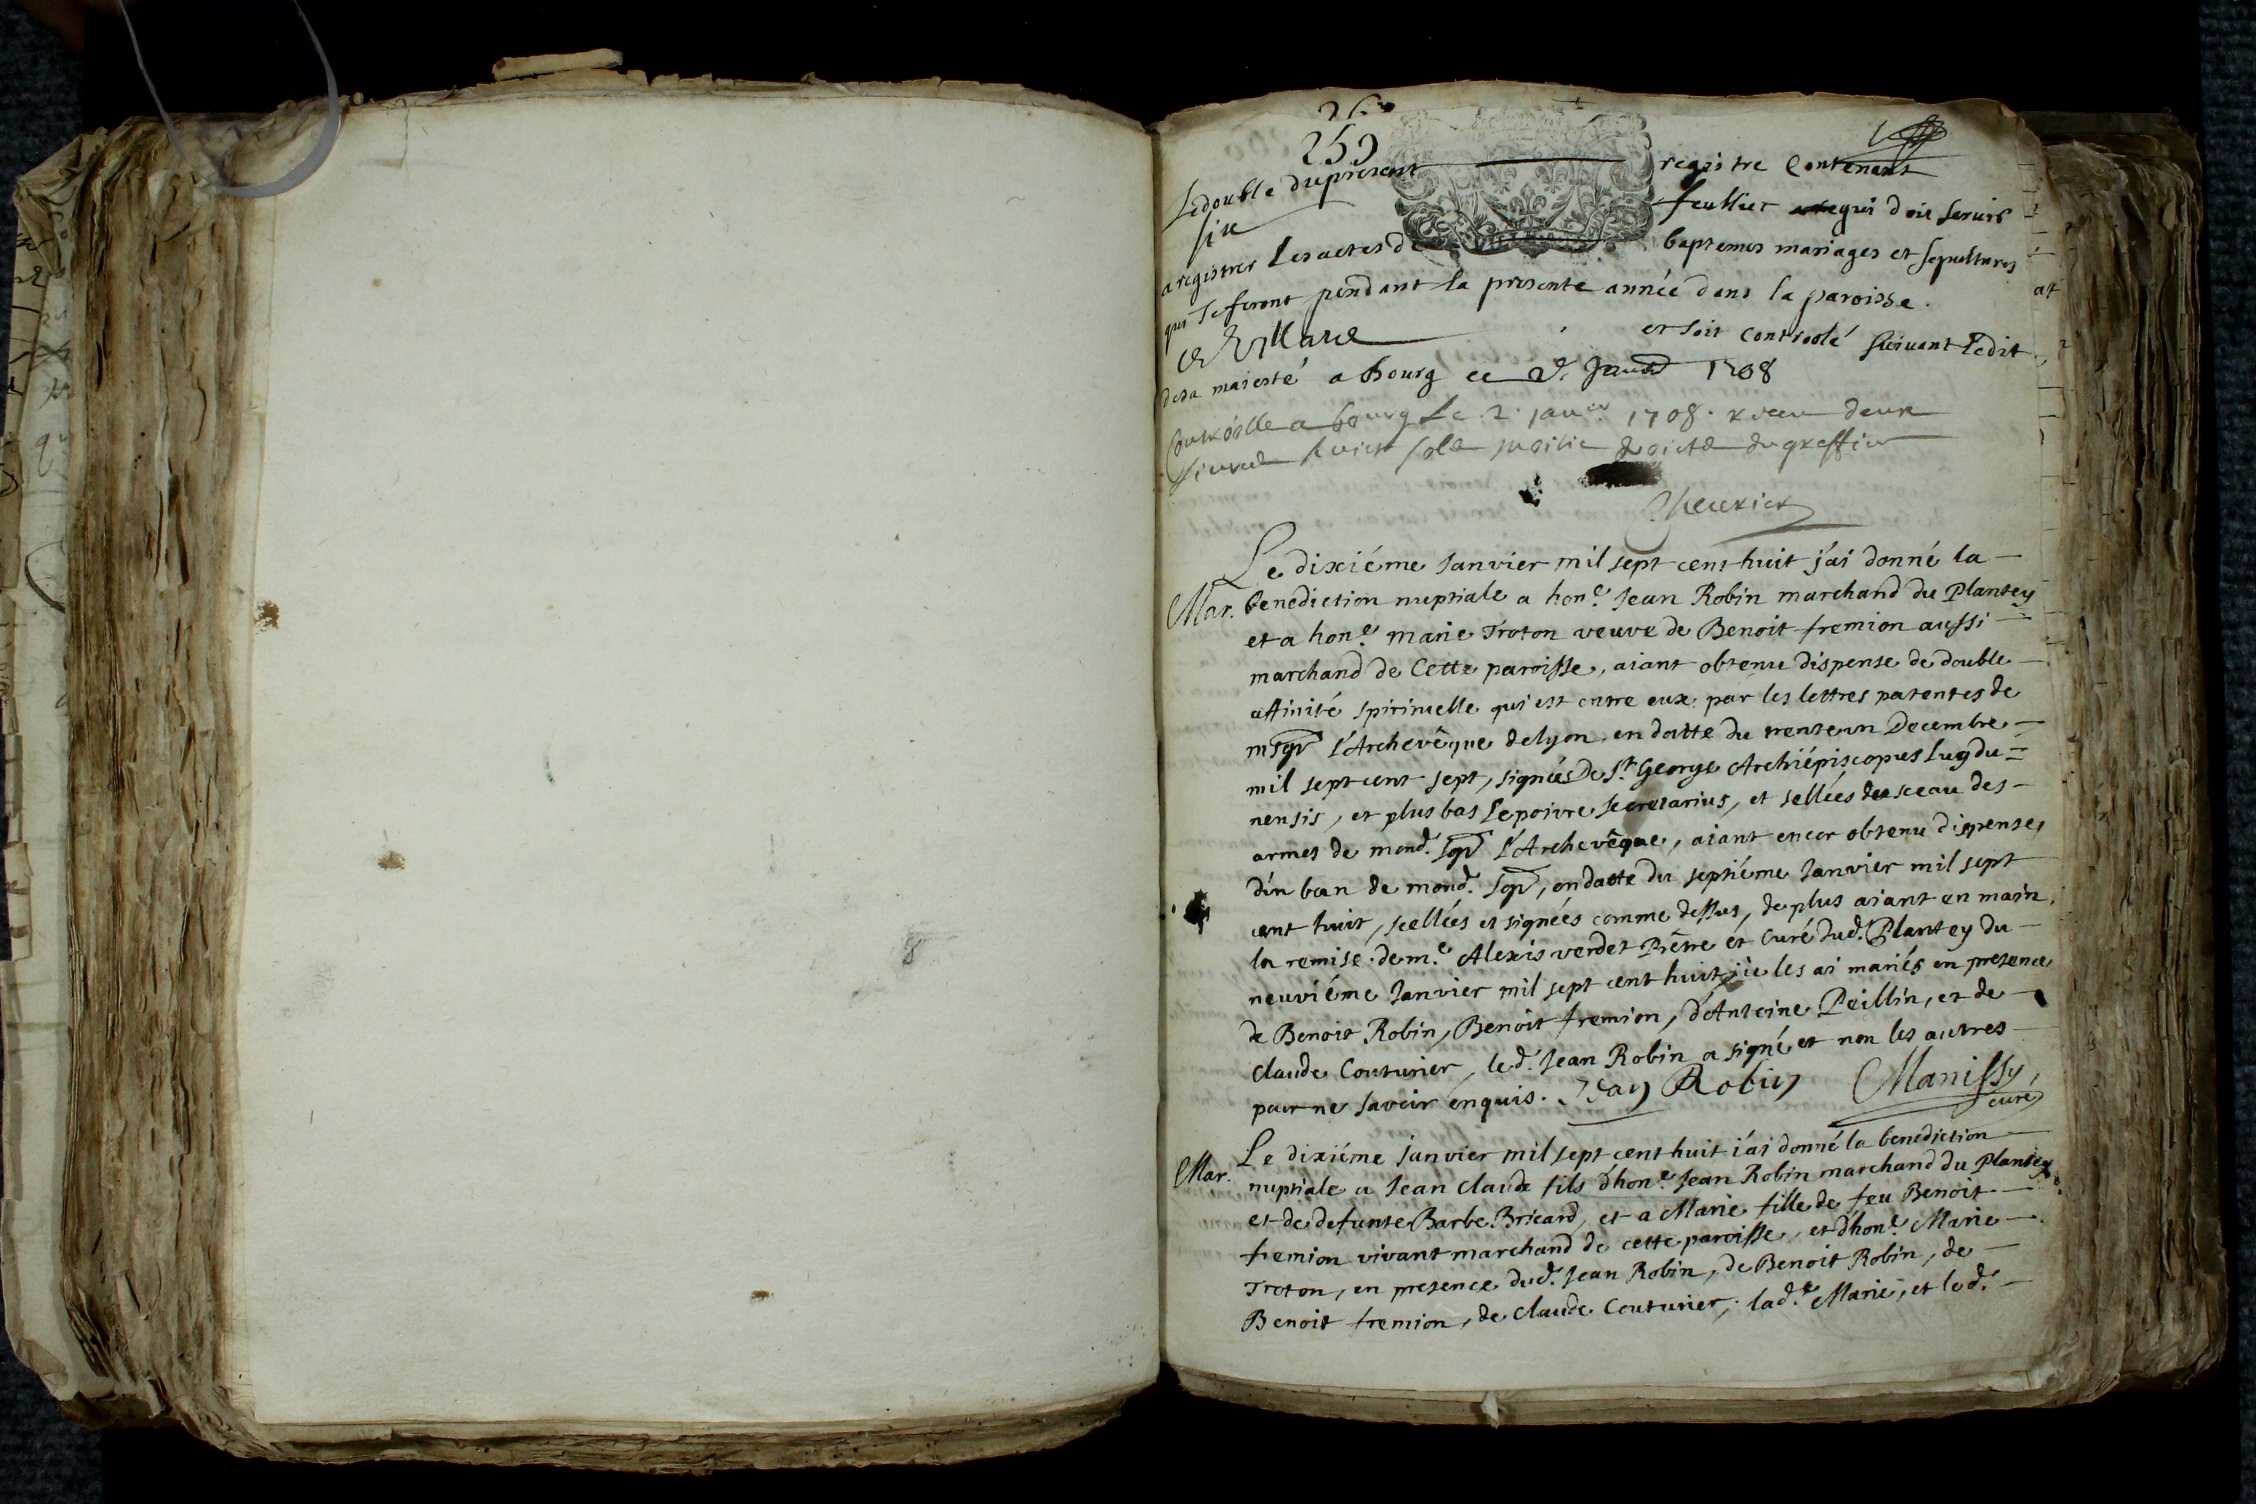 259
Le double du present registre Contenant
six feullier qui doit servir
a registrer Les actes de baptemes mariages et sepultures
qui se feront pendant la presente année dans la paroisse
de Villard et soit controolé suivant l'edit
de sa majesté a bourg ce 2e Janvier 1708
Controolle a bourg Le 2 janer 1708. receu deux
sols moitié du greffier
Le dixiéme Janvier mil sept cent huit j'ai donné la
Mar. benediction nuptiale a hone. Jean Robin marchand du Plantey
et a hone. marie Troton veuve de Benoit fremion aussi
marchand de Cette paroisse, aiant obtenu dispense de double
affinité spirituelle qui est entre eux par les lettres patentes de
msgr L'Archevêque de lyon en datte du trente un Decembre
mil sept cent sept, signées De St. George Archiépiscopus Lugdu=
nensis, et plus bas Lepoivre secretarius, et sellées du sceau des
armes de mond. sgr L'Archevêque, aiant encor obtenu dispenses
d'un ban de mond. sgr, en datte du septiéme Janvier mil sept
cent huit, scellées et signées comme dessus, de plus aiant en main
la remise de me. Alexis verdet Prêtre et Curé dud. Plantey du
neuviéme Janvier mil sept cent huit, je les ai mariés en presence
de Benoit Robin, Benoit fremion, d'Antoine Peillin, et de
Claude Couturier, led. Jean Robin a signé et non les autres
pour ne savoir enquis. Jean Robin Manissy,
curé
Le dixiéme Janvier mil sept cent huit j'ai donné la benediction
Mar. nuptiale a Jean Claude fils d'hone. Jean Robin marchand du Plantey
et de defunte Barbe Bricard, et a Marie fille de feu Benoit
fremion vivant marchand de cette paroisse, et d'hone. Marie
Troton, en presence dud. Jean Robin, de Benoit Robin, de
Benoit fremion, de Claude Couturier, lad.e Marie, et led.